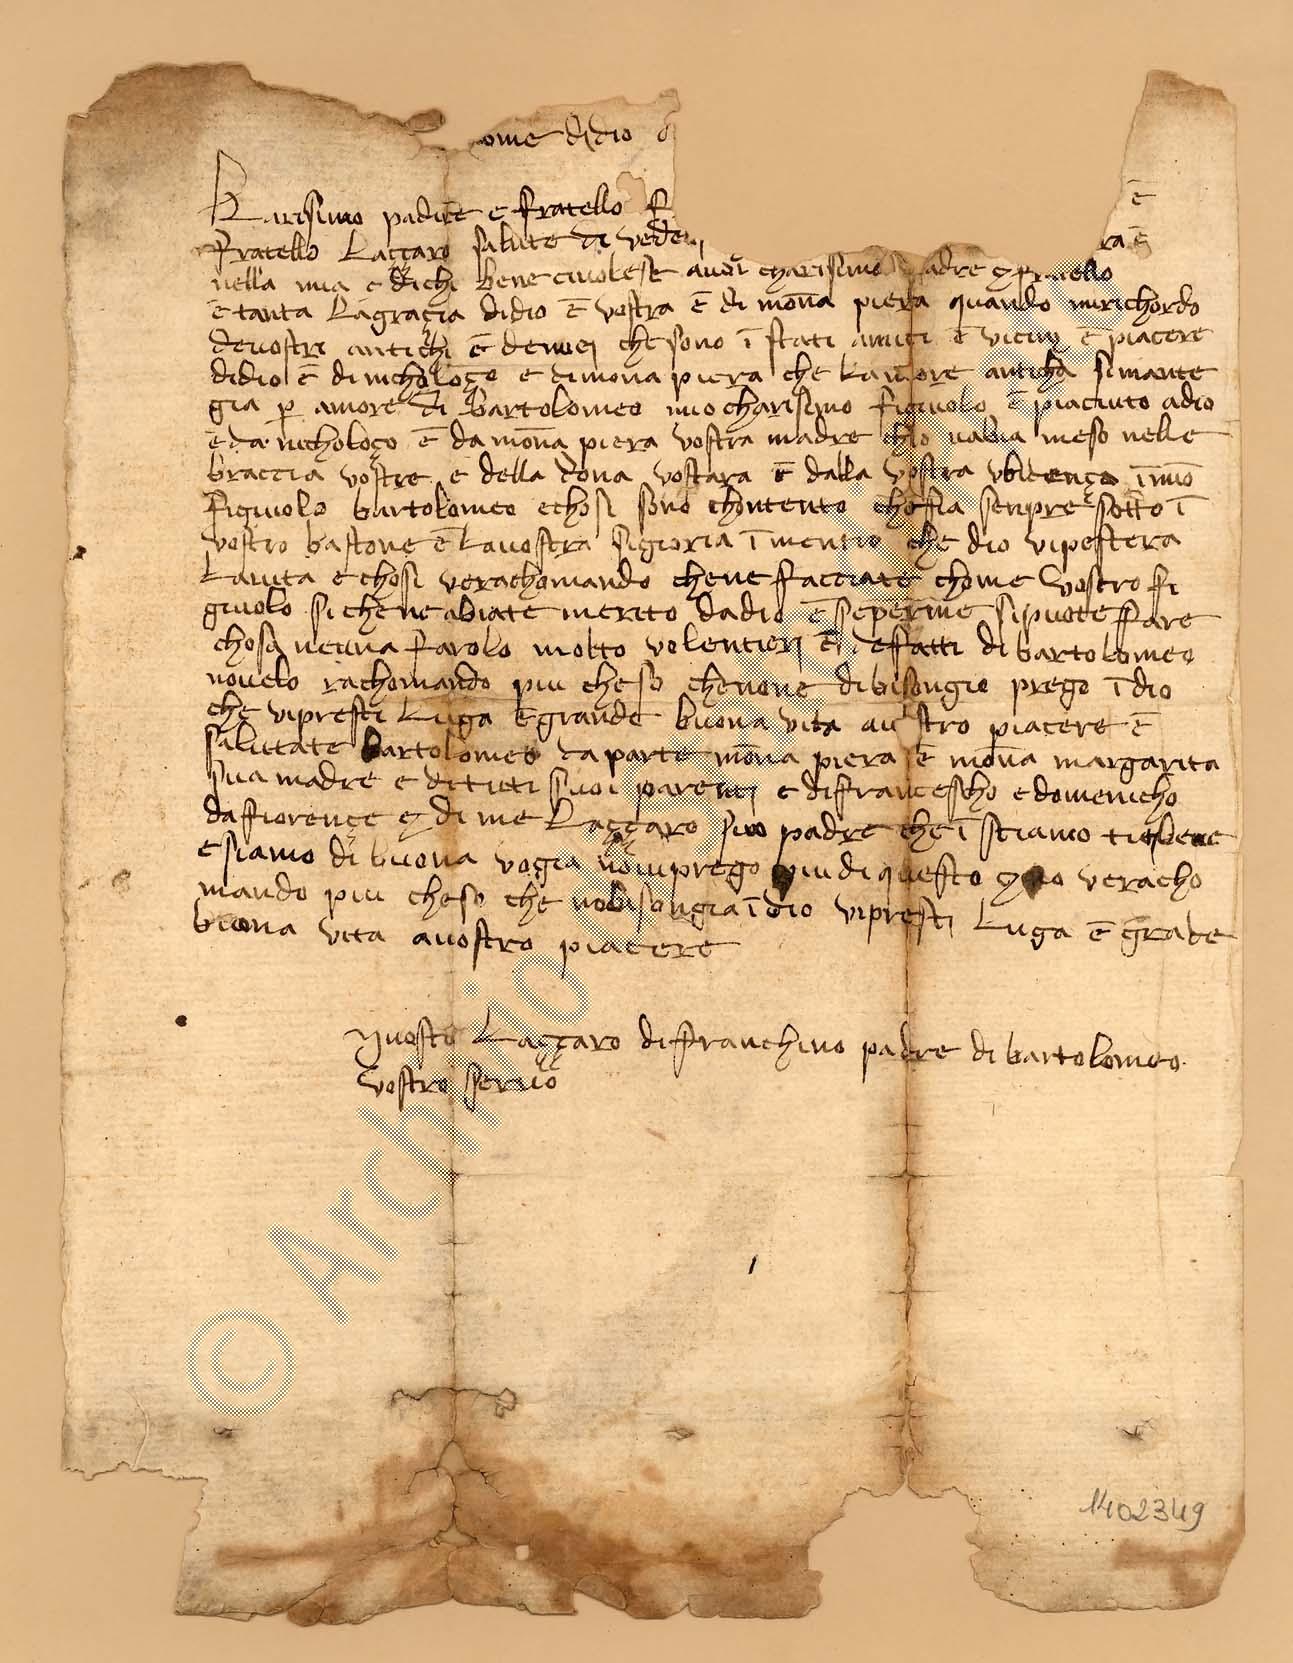 ome didio
Karisimo padre e fratello
fratello Laççaro salute di veder
nella mia e dichi bene civolese charisimo padre fratello
e tanta Lagraçia didio ē vostra ē di mōna piera quando mirichordo
devostri antichi ē che sono ī stati amici ē vicin ē piacere
didio ē di nicholoço e dimona piera che Lamore anticha simante
gia p amore di Bartolomeo mio charisimo figiuolo ē piaciuto adio
e da nicholoço ē da mōna piera vostra madre chio nabia meso nelle
braccia vostre e della dona vostara ē dalla vostra
figiuolo bartolomeo echosi sono chontento chesia senpre sotto ī
vostro bastone ē Lavostra sigioria ī mentre che dio vipestera
Lavita e chosi verachomando chene facciate chome vostro fi
giuolo si chene abiate merito dadio ē seperme sipuote fare
chosa neuna farolo molto volentieri ē defatti di bartolomeo
novelo rachomando piu cheso chenone dibisongio prego īdio
che vipresti Luga ē grande buona vita piacere ē
salutate bartolomeo da parte mōna piera ē mōna margarita
sua madre e dituti suoi parenti e difrancescho e domenicho
dafiorençe di me Laççaro suo padre che ī stiamo
e siamo di buona vogia piu di questo veracho
mando piu cheso che nobisongia īdio vipresti Luga ē grade
buona vita avostro piacere
Laççaro difranchino padre di bartolomeo
vostro servo
1402349
© Archivio di